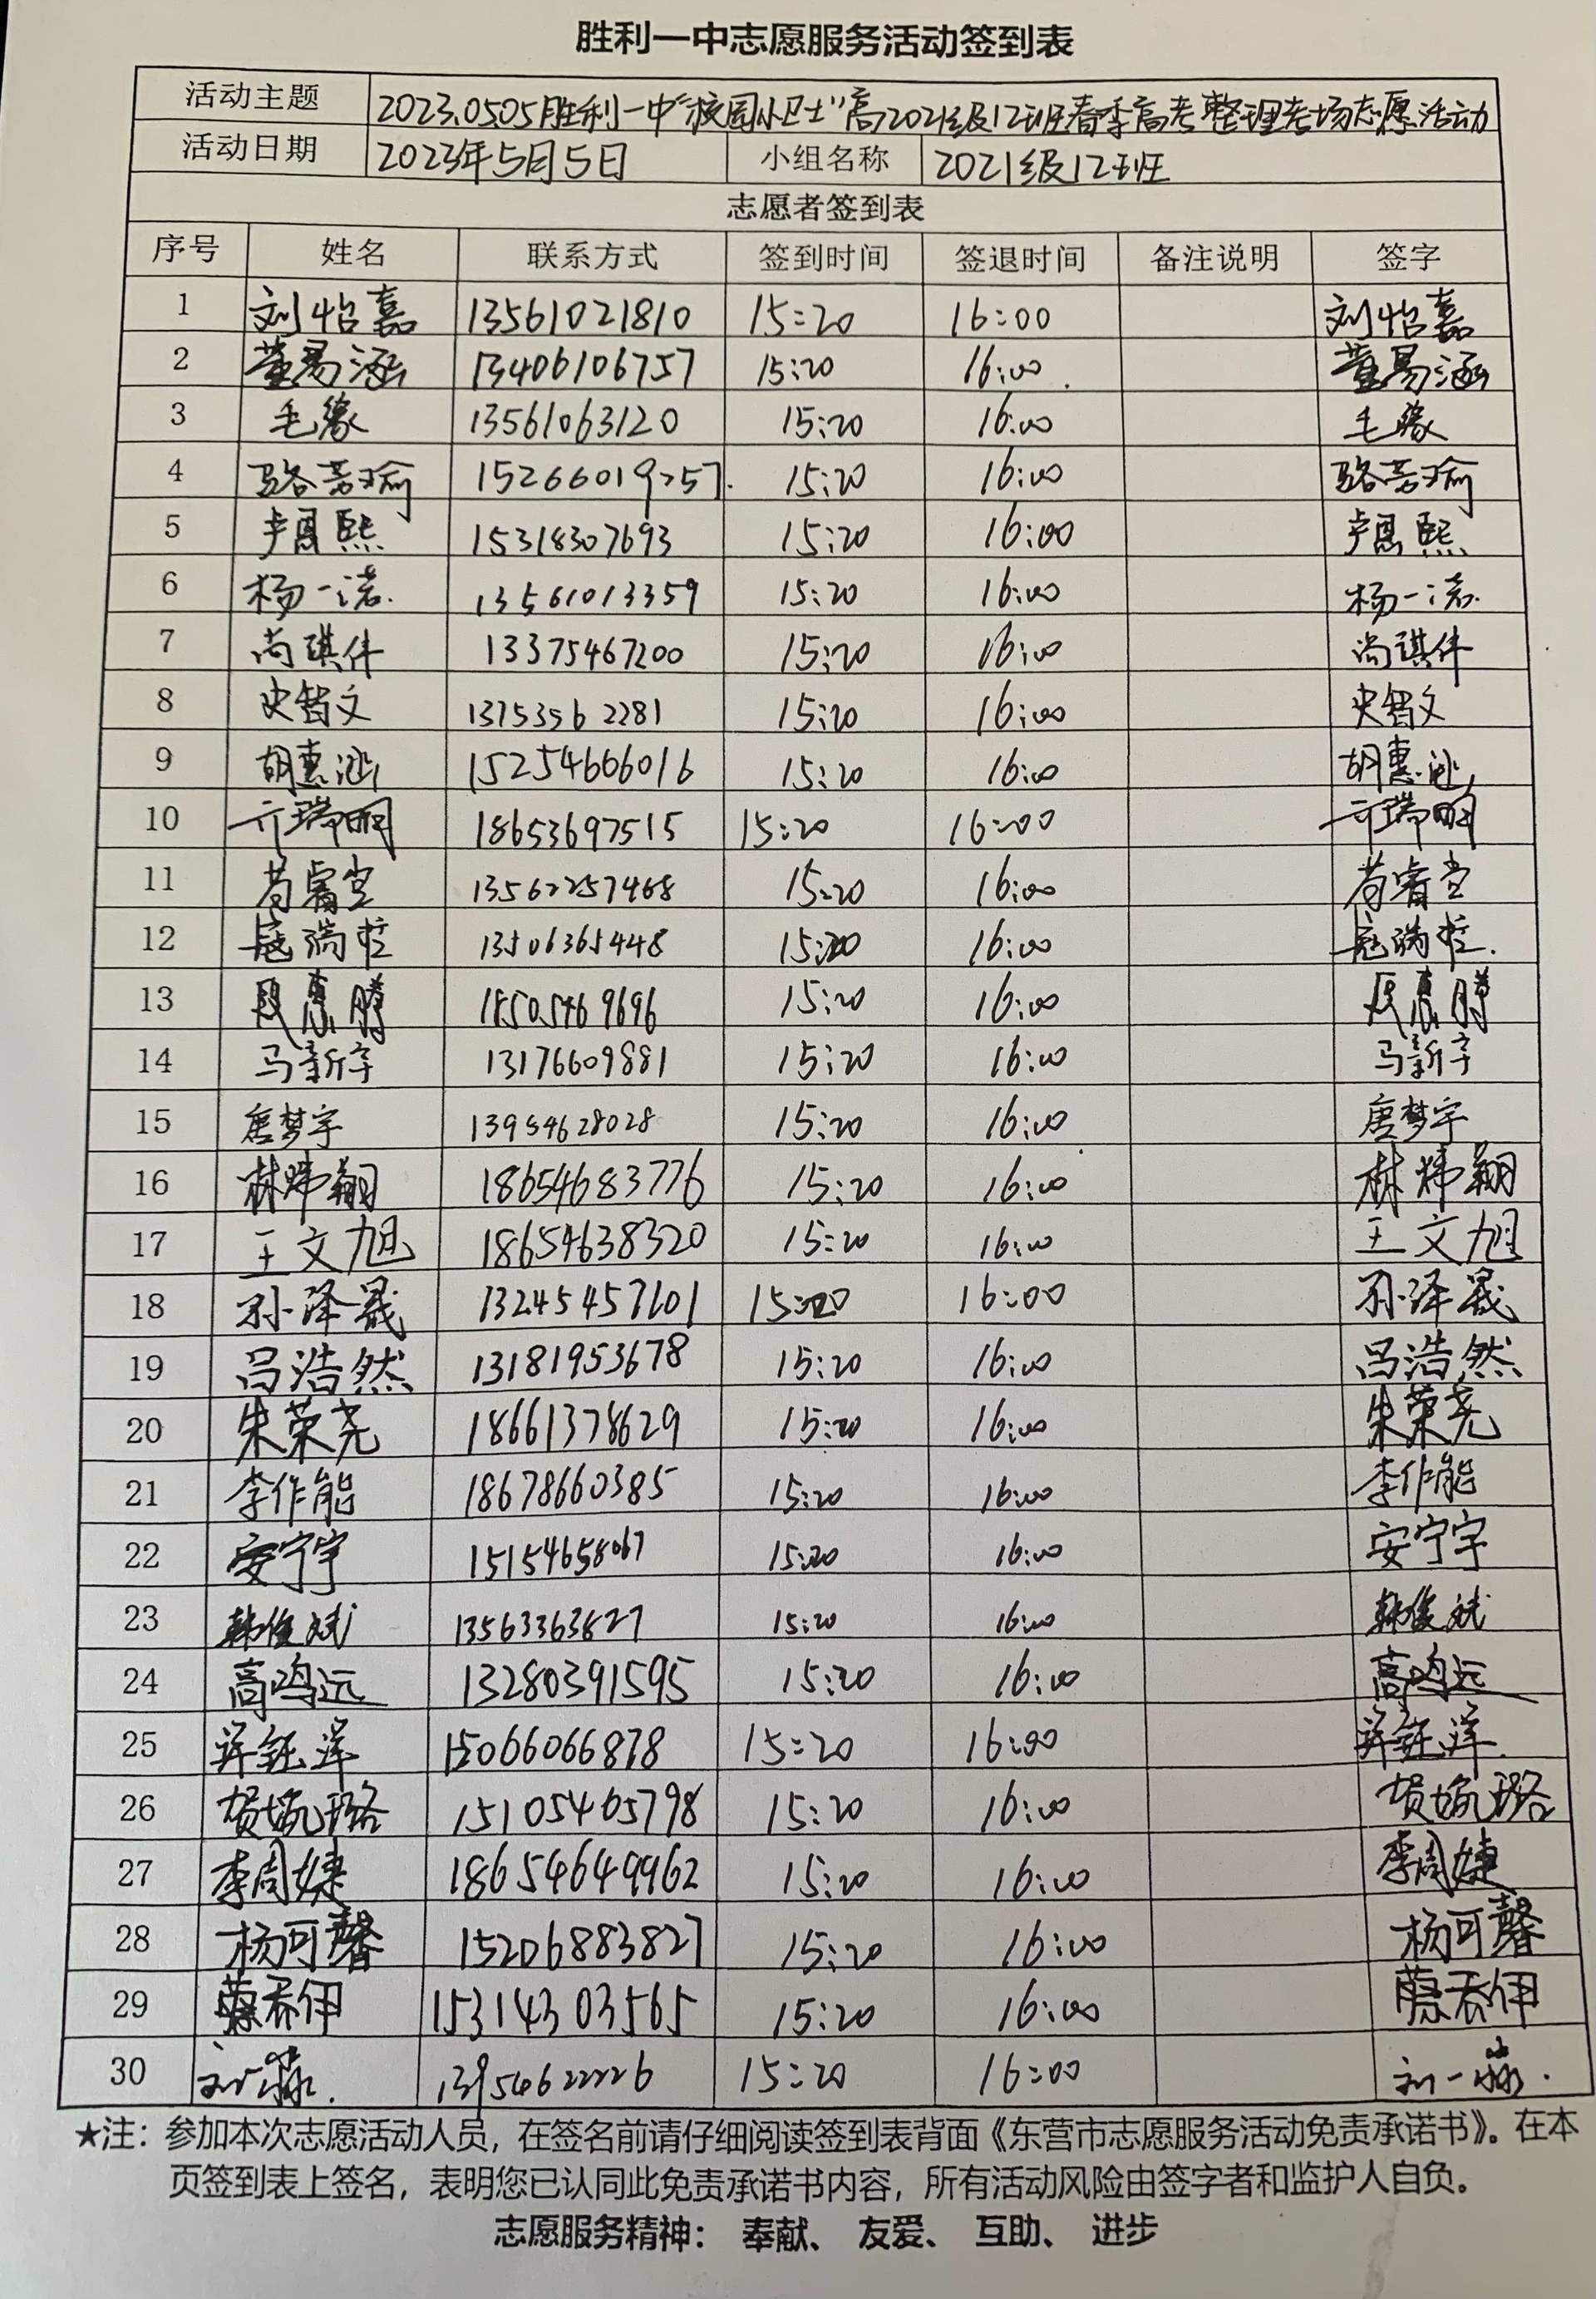 胜利一中志愿服务活动签到表
活动主题 2023.05.05胜利一中“校园小卫士”高2021级12班春季高考整理考场志愿活动
活动日期 2023年5月5日 小组名称 2021级12班
志愿者签到表
序号 姓名 联系方式 签到时间 签退时间 备注说明 签字
1 刘怡嘉 13561021810 15:20 16:00 刘怡嘉
2 董易涵 13406106757 15:20 16:00 董易涵
3 毛缘 13561063120 15:20 16:00 毛缘
4 15:20 16:00
5 卢恩熙 15318307693 15:20 16:00 卢恩熙
6 杨一诺 13561013359 15:20 16:00 杨一诺
7 尚琪伟 13375467200 15:20 16:00 尚琪伟
8 史智文 13753562281 15:20 16:00 史智文
9 胡惠涵 15254606016 15:20 16:00 胡惠涵
10 亓瑞明 18653697515 15:20 16:00 亓瑞明
11 13562257468 15:20 16:00
12 13506365448 15:20 16:00
13 段惠腾 15:20 16:00 段惠腾
14 马新宇 13176609881 15:20 16:00 马新宇
15 唐梦宇 13954628028 15:20 16:00 唐梦宇
16 林炜翔 18654683776 15:20 16:00 林炜翔
17 王文旭 18654638320 15:20 16:00 王文旭
18 孙泽晟 13245457601 15:20 16:00 孙泽晟
19 吕浩然 13181953678 15:20 16:00 吕浩然
20 朱荣尧 18661378629 15:20 16:00 朱荣尧
21 李作能 18678660385 15:20 16:00 李作能
22 安宁宇 15154658067 15:20 16:00 安宁宇
23 韩俊斌 13563363827 15:20 16:00 韩俊斌
24 高鸣远 13280391595 15:20 16:00 高鸣远
25 许钰洋 15066066878 15:20 16:00 许钰洋
26 贺婉璐 15105465798 15:20 16:00 贺婉璐
27 李周婕 18654649962 15:20 16:00 李周婕
28 杨可馨 15206883827 15:20 16:00 杨可馨
29 15314303565 15:20 16:00
30 13954622226 15:20 16:00
★注：参加本次志愿活动人员，在签名前请仔细阅读签到表背面《东营市志愿服务活动免责承诺书》。在本
页签到表上签名，表明您已认同此免责承诺书内容，所有活动风险由签字者和监护人自负。
志愿服务精神： 奉献、 友爱、 互助、 进步